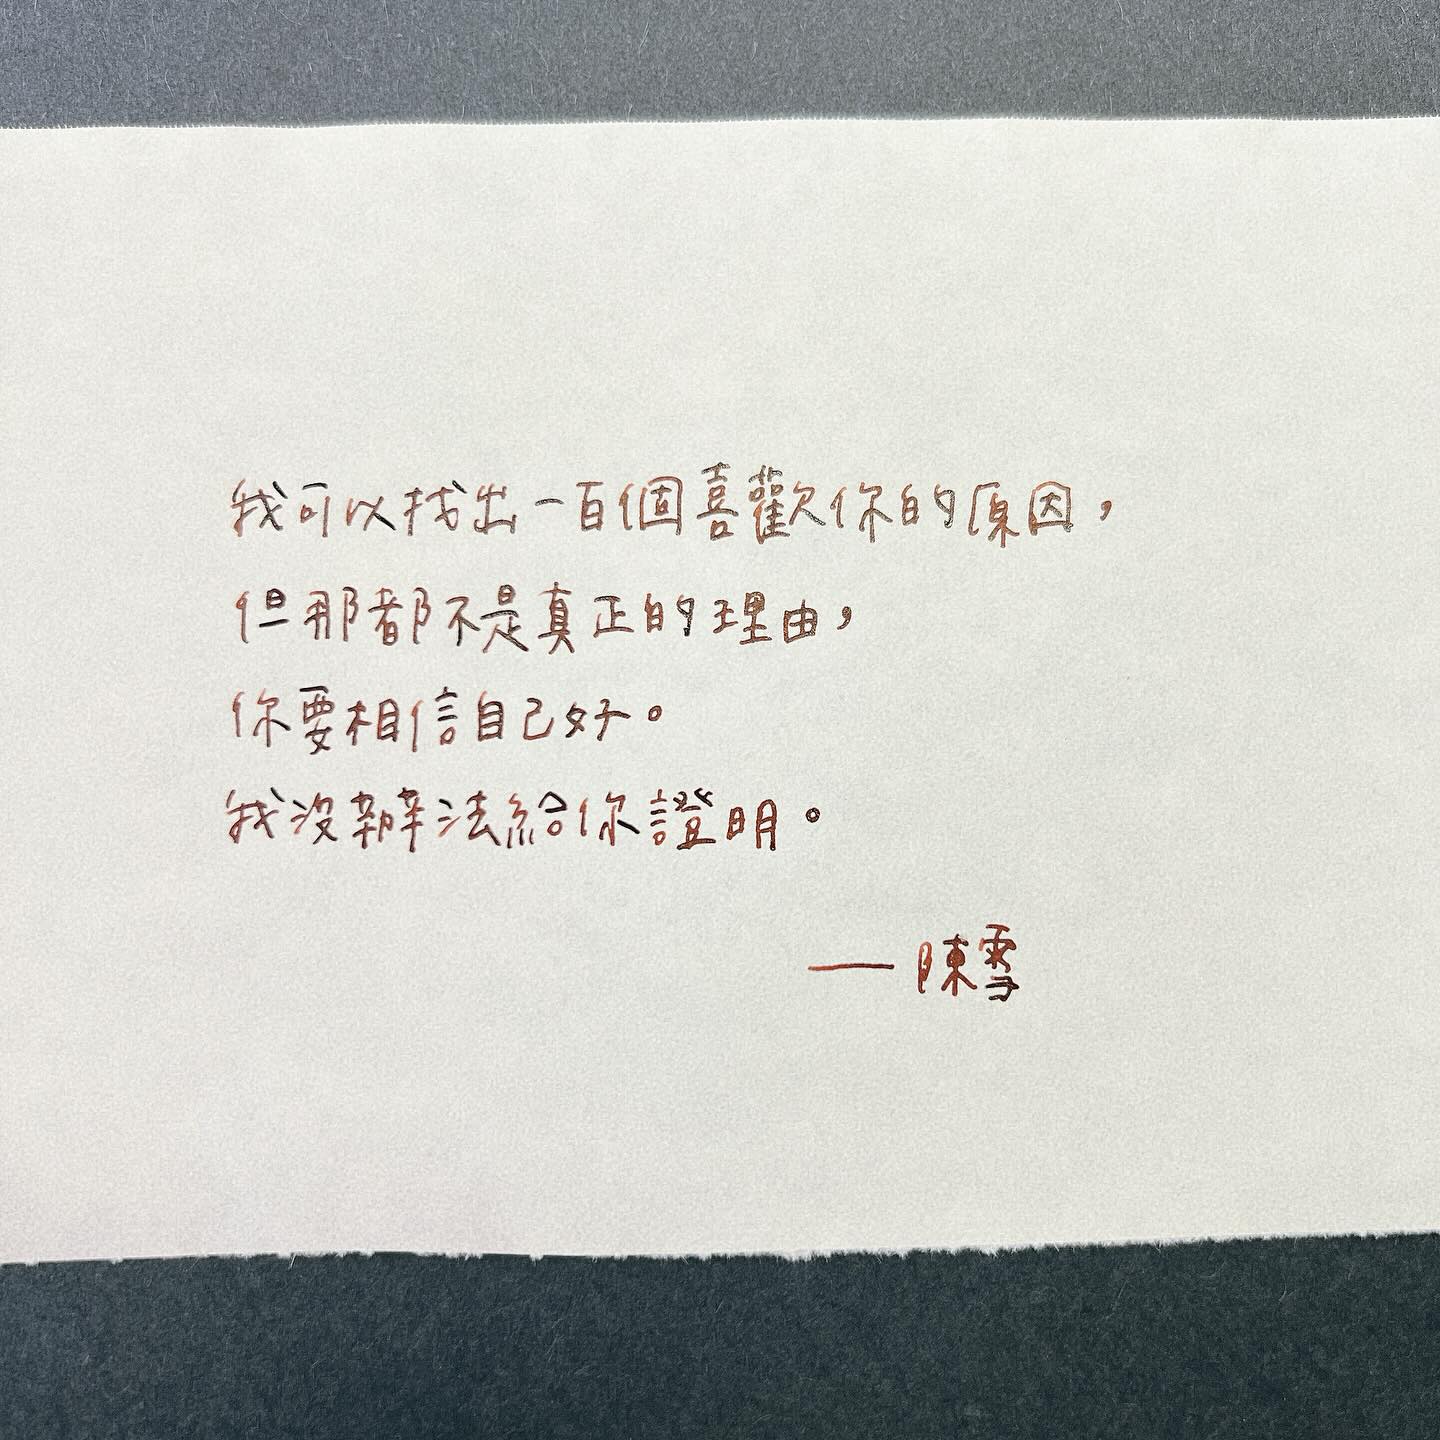 我可以找出一百個喜歡你的原因，
但那都不是真正的理由，
你要相信自己好。
我沒辦法給你證明。
——陳雪